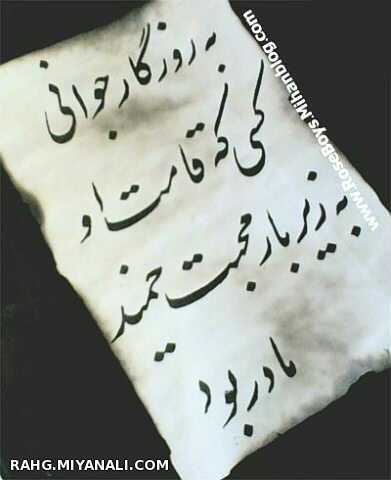 به روزگار جوانی
کمی که قامت او
به زیر بار محبت خمید
مادر بود
www.RoseBoys.Mihanblog.com
RAHG.MIYANALI.COM